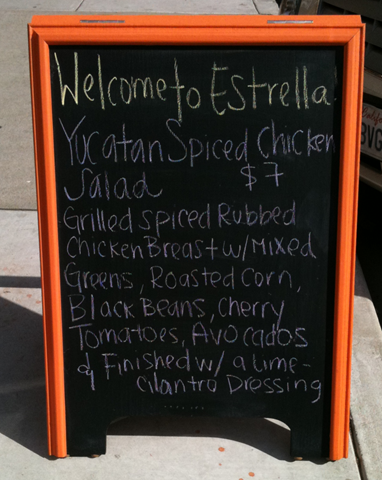 Welcome to Estrella
Yucatan Spiced Chicken
Salad $7
Grilled spiced Rubbed
Chicken Breast w/ Mixed
Greens, Roasted Corn,
Black Beans, Cherry
Tomatoes, Avocados
& Finished w/ a lime-
cilantro Dressing